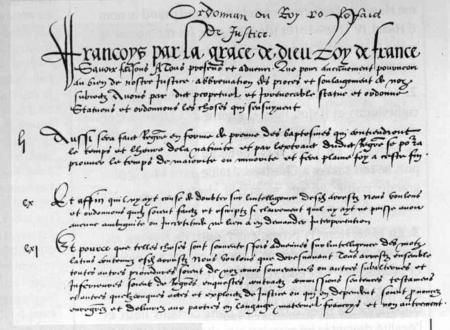 Ordonnan du Roy po le faict
De Justice.
Francoys par la grace de dieu Roy de france
Scavoir faisons A Tous presens et advenir Que pour aucunement pourveoir
au bien de nostre Justice abbreviation des proces et soulagement de noz
subiectz Avons par edit perpetuel et Irrevocable statue et ordonne
Statuons et ordonnons les choses qui sensuyvent
lj Aussi sera faict Regre en forme de preuve des baptesmes qui contiendront
le temps et lheure de la nativite et par lextraict dudit Regre se po ra
prouver le temps de maiorite ou minorite et fera plaine foy a ceste fin
cx Et affin quil ny ayt cause de doubter sur lintelligence desd arrestz Nous voulons
et ordonnons quilz soient faictz et escriptz si clairement quil ny ayt ne puisse avoir
aucune ambiguite ou incertitude ne lieu a en demander interpretation
cxi Et pource que telles choses sont souventesfois advenues sur lintelligence des motz
latins contenuz esd arrestz Nous voulons que doresnavant Tous arrestz ensemble
toutes autres procedures soient de noz cours souveraines ou autres subalternes et
Inferieures soient de Regres enquestes contractz commissions sentences testamens
et autres quelzconques actes et exploictz de Justice ou qui en dependent soient prononcez
enregrez et delivrez aux parties en langage maternel francoys et non autrement.